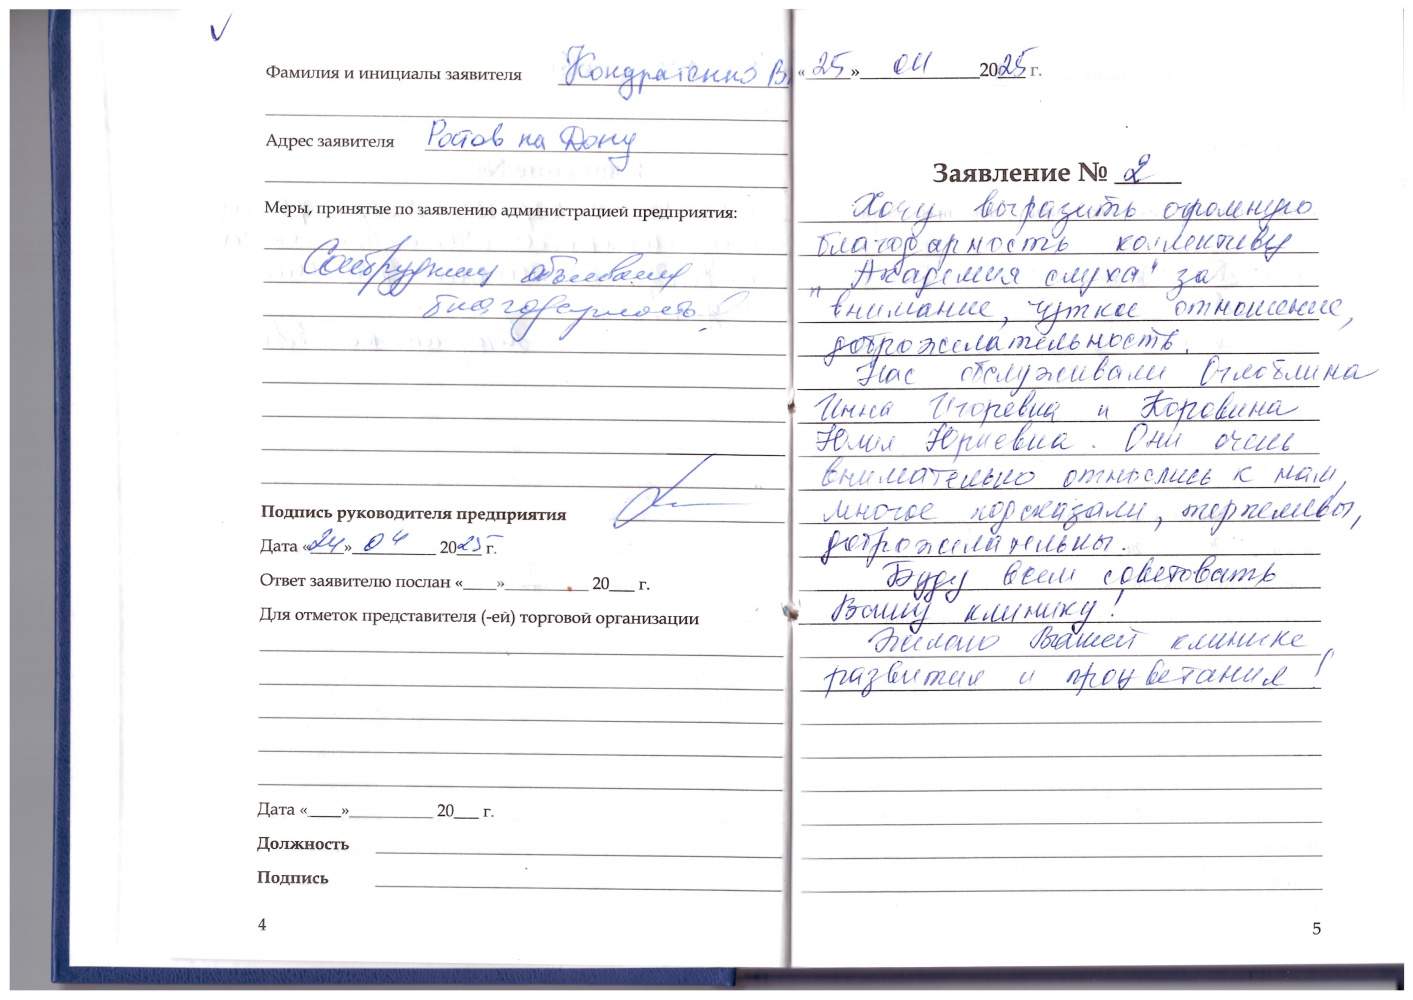 Фамилия и инициалы заявителя Кондратенко В.
Адрес заявителя Ростов на Дону
Меры, принятые по заявлению администрацией предприятия:
Сотруднику объявлена
благодарность!
Подпись руководителя предприятия
Дата «24» 04 2025 г.
Ответ заявителю послан «____»__________ 20___ г.
Для отметок представителя (-ей) торговой организации
Дата «____»__________ 20___ г.
Должность
Подпись
4
«25» 04 2025 г.
Заявление № 2
Хочу выразить огромную
благодарность коллективу
"Академия слуха" за
внимание, чуткое отношение,
доброжелательность.
Нас обслуживали Оглоблина
Инна Игоревна и Коровина
Юлия Юриевна. Они очень
внимательно отнеслись к нам,
многое подсказали, терпеливы,
доброжелательны.
Буду всем советовать
Вашу клинику!
Желаю Вашей клинике
развития и процветания!
5